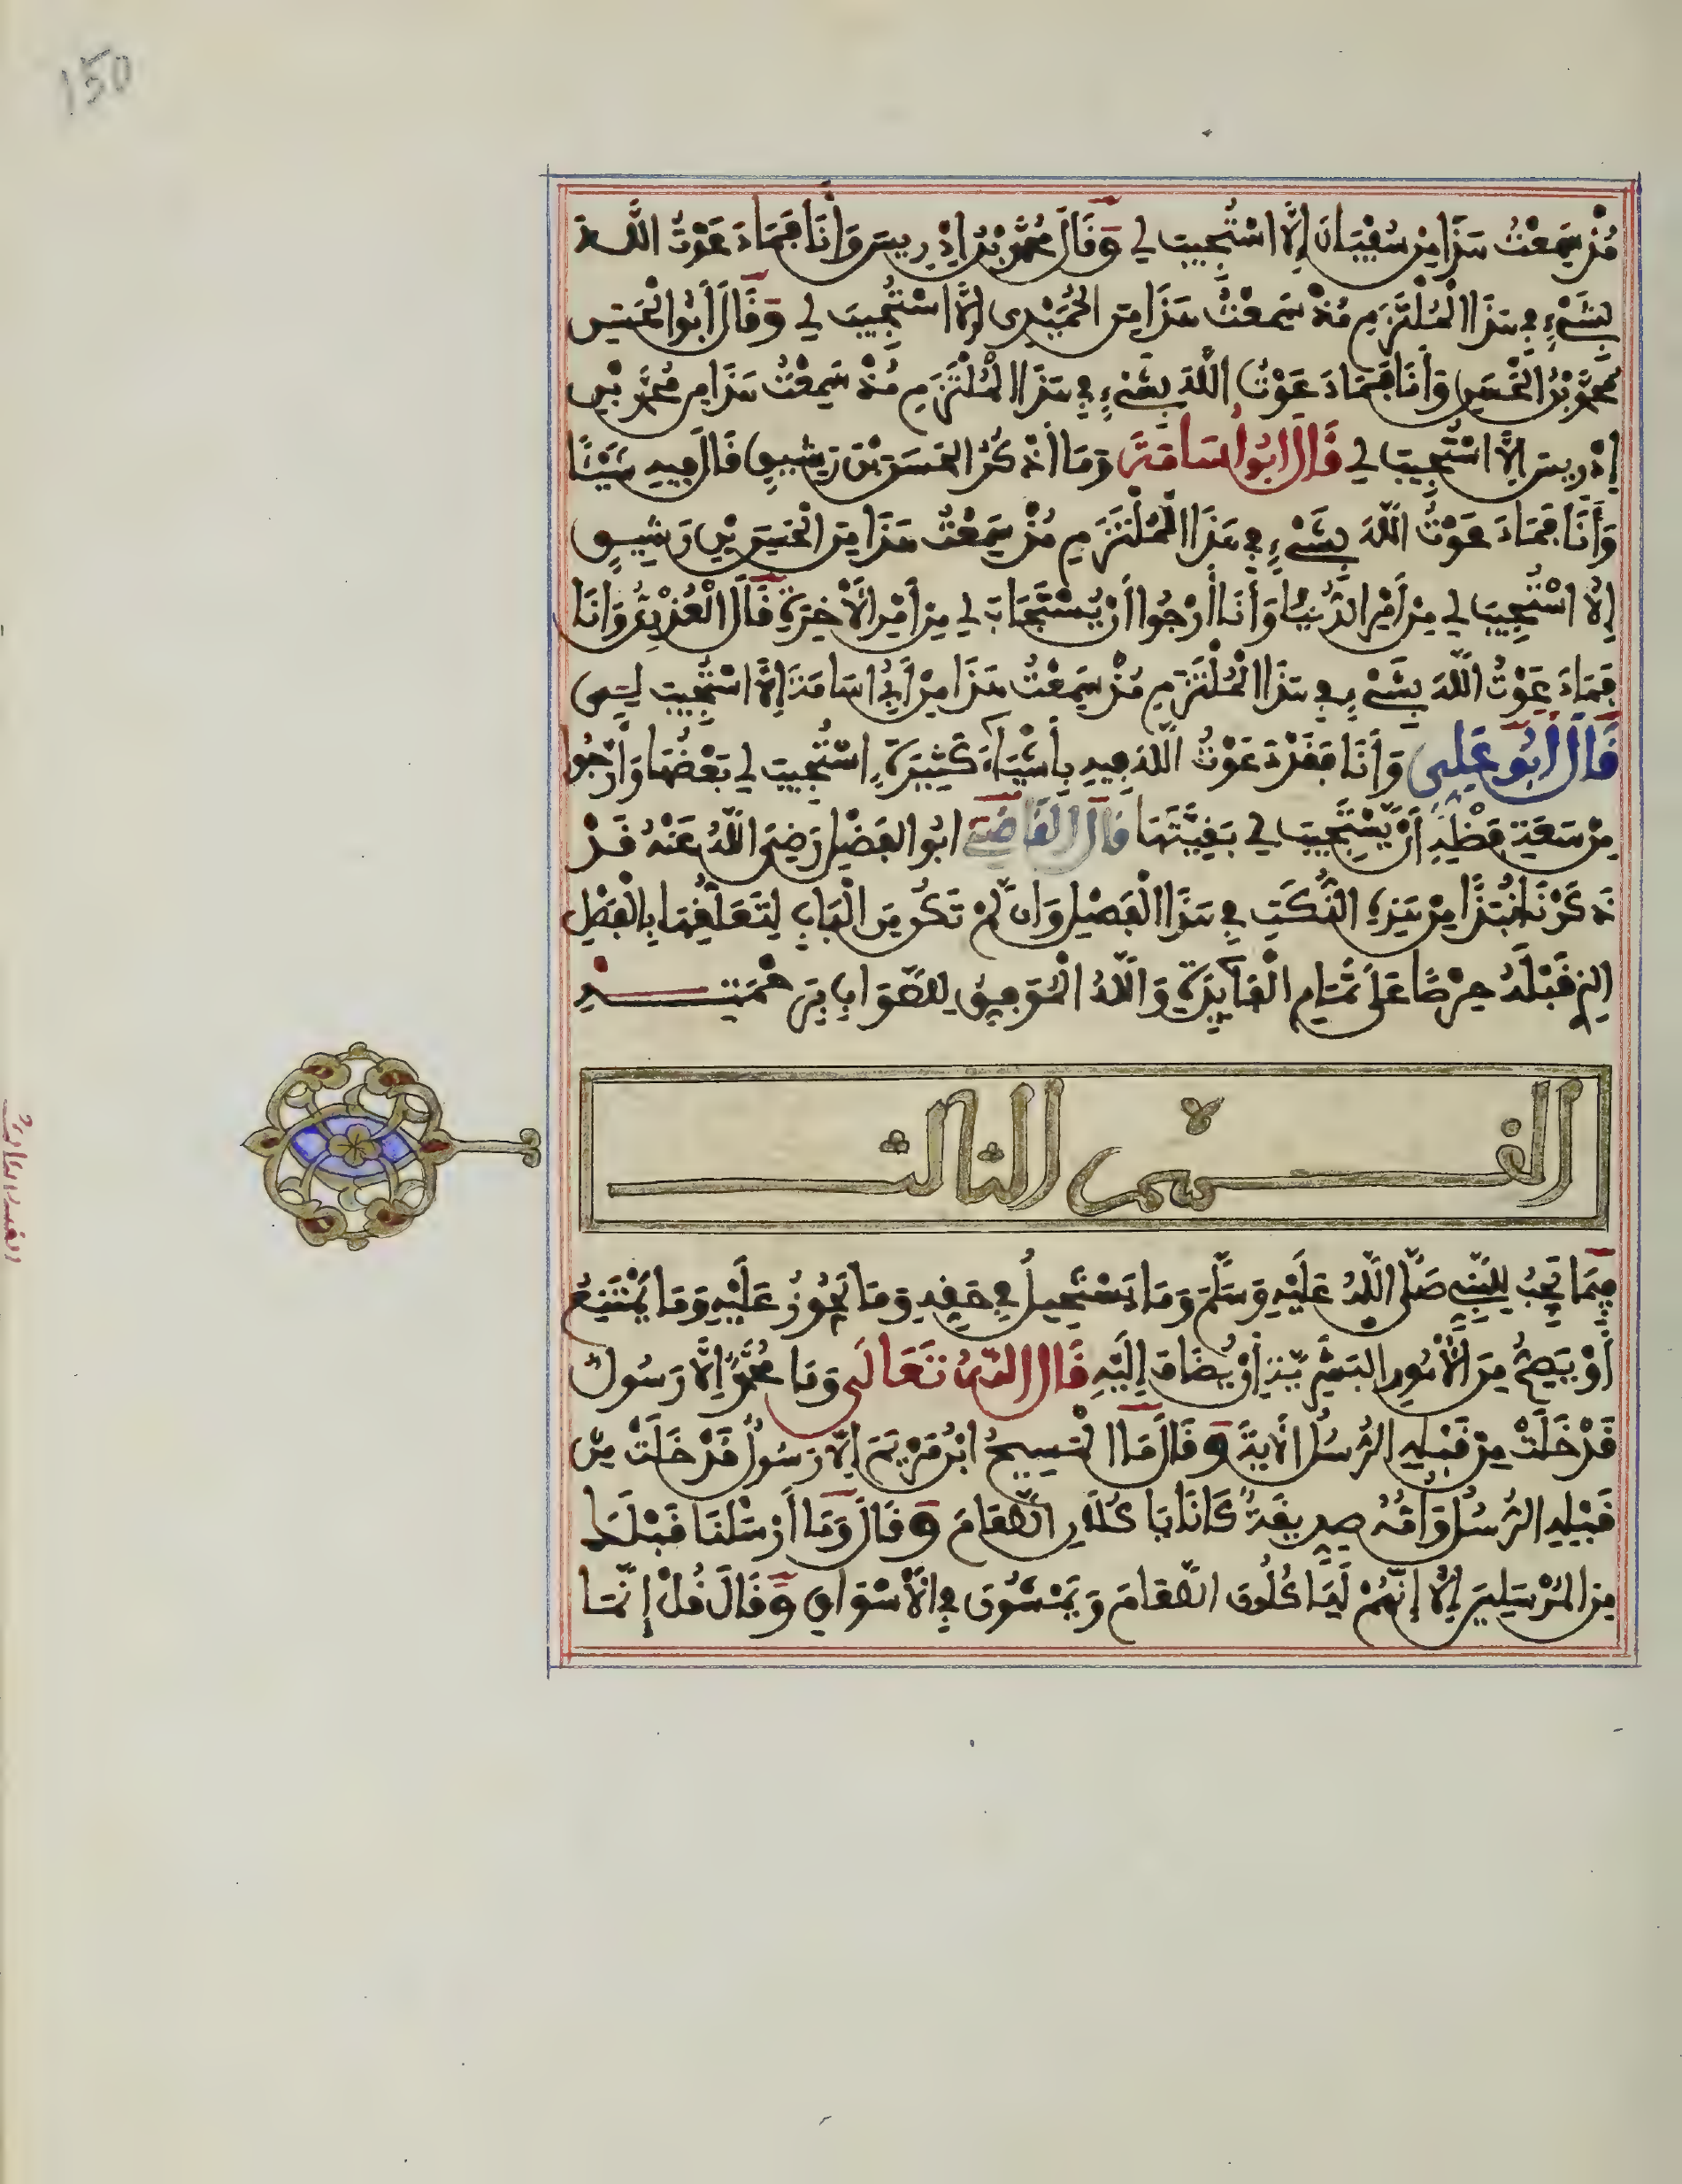 150
مُنْذُ سَمِعْتُ هَذَا مِنْ سُفْيَانَ إِلَّا اسْتُجِيبَ لِي وَقَالَ مُحَمَّدُ بْنُ إِدْرِيسَ وَأَنَا فَمَا دَعَوْتُ اللَّهَ
بِشَيْءٍ فِي هَذَا الْمُلْتَزَمِ مُنْذُ سَمِعْتُ هَذَا مِنَ الْحُمَيْدِي إِلَّا اسْتُجِيبَ لِي وَقَالَ أَبُو الْحَسَنِ
مُحَمَّدُ بْنُ الْحَسَنِ وَأَنَا فَمَا دَعَوْتُ اللَّهَ بِشَيْءٍ فِي هَذَا الْمُلْتَزَمِ مُنْذُ سَمِعْتُ هَذَا مِنْ مُحَمَّدِ بْنِ
إِدْرِيسَ إِلَّا اسْتُجِيبَ لِي قَالَ أَبُو أُسَامَةَ وَمَا أَذْكُرُ الْحَسَنَ بْنَ رَشِيقٍ قَالَ فِيهِ شَيْئًا
وَأَنَا فَمَا دَعَوْتُ اللَّهَ بِشَيْءٍ فِي هَذَا الْمُلْتَزَمِ مُنْذُ سَمِعْتُ هَذَا مِنَ الْحَسَنِ بْنِ رَشِيقٍ
إِلَّا اسْتُجِيبَ لِي مِنْ أَمْرِ الدُّنْيَا وَأَنَا أَرْجُوا أَنْ يُسْتَجَابَ لِي مِنْ أَمْرِ الْآخِرَةِ قَالَ الْعُذْرِيُّ وَأَنَا
فَمَا دَعَوْتُ اللَّهَ بِشَيْءٍ فِي هَذَا الْمُلْتَزَمِ مُنْذُ سَمِعْتُ هَذَا مِنْ أَبِي أُسَامَةَ إِلَّا اسْتُجِيبَ لِي
قَالَ أَبُو عَلِيٍّ وَأَنَا فَقَدْ دَعَوْتُ اللَّهَ فِيهِ بِأَشْيَاءَ كَثِيرَةٍ اسْتُجِيبَ لِي بَعْضُهَا وَأَرْجُوا
مِنْ سَعَةِ فَضْلِهِ أَنْ يَسْتَجِيبَ لِي بَقِيَّتَهَا قَالَ الْقَاضِي أَبُو الْفَضْلِ رَضِيَ اللَّهُ عَنْهُ قَدْ
ذَكَرْنَا نُبَذًا مِنْ هَذِهِ النُّكَتِ فِي هَذَا الْفَصْلِ وَإِنْ لَمْ تَكُنْ مِنَ الْبَابِ لِتَعَلُّقِهَا بِالْفَصْلِ
الذِي قَبْلَهُ حِرْصًا عَلَى تَمَامِ الْفَائِدَةِ وَاللَّهُ الْمُوَفِّقُ لِلصَّوَابِ بِرَحْمَتِهِ
القسم الثالث
القسم الثالث
فِيمَا يَجِبُ لِلنَّبِيِّ صَلَّى اللَّهُ عَلَيْهِ وَسَلَّمَ وَمَا يَسْتَحِيلُ فِي حَقِّهِ وَمَا يَجُوزُ عَلَيْهِ وَمَا يَمْتَنِعُ
أَوْ يَصِحُّ مِنَ الْأُمُورِ الْبَشَرِيَّةِ أَنْ يُضَافَ إِلَيْهِ قَالَ اللَّهُ تَعَالَى وَمَا مُحَمَّدٌ إِلَّا رَسُولٌ
قَدْ خَلَتْ مِنْ قَبْلِهِ الرُّسُلُ الْآيَةَ وَقَالَ مَا الْمَسِيحُ ابْنُ مَرْيَمَ إِلَّا رَسُولٌ قَدْ خَلَتْ مِنْ
قَبْلِهِ الرُّسُلُ وَأُمُّهُ صِدِّيقَةٌ كَانَا يَاكُلَانِ الطَّعَامَ وَقَالَ وَمَا أَرْسَلْنَا قَبْلَكَ
مِنَ الْمُرْسَلِينَ إِلَّا إِنَّهُمْ لَيَاكُلُونَ الطَّعَامَ وَيَمْشُونَ فِي الْأَسْوَاقِ وَقَالَ قُلْ إِنَّمَا